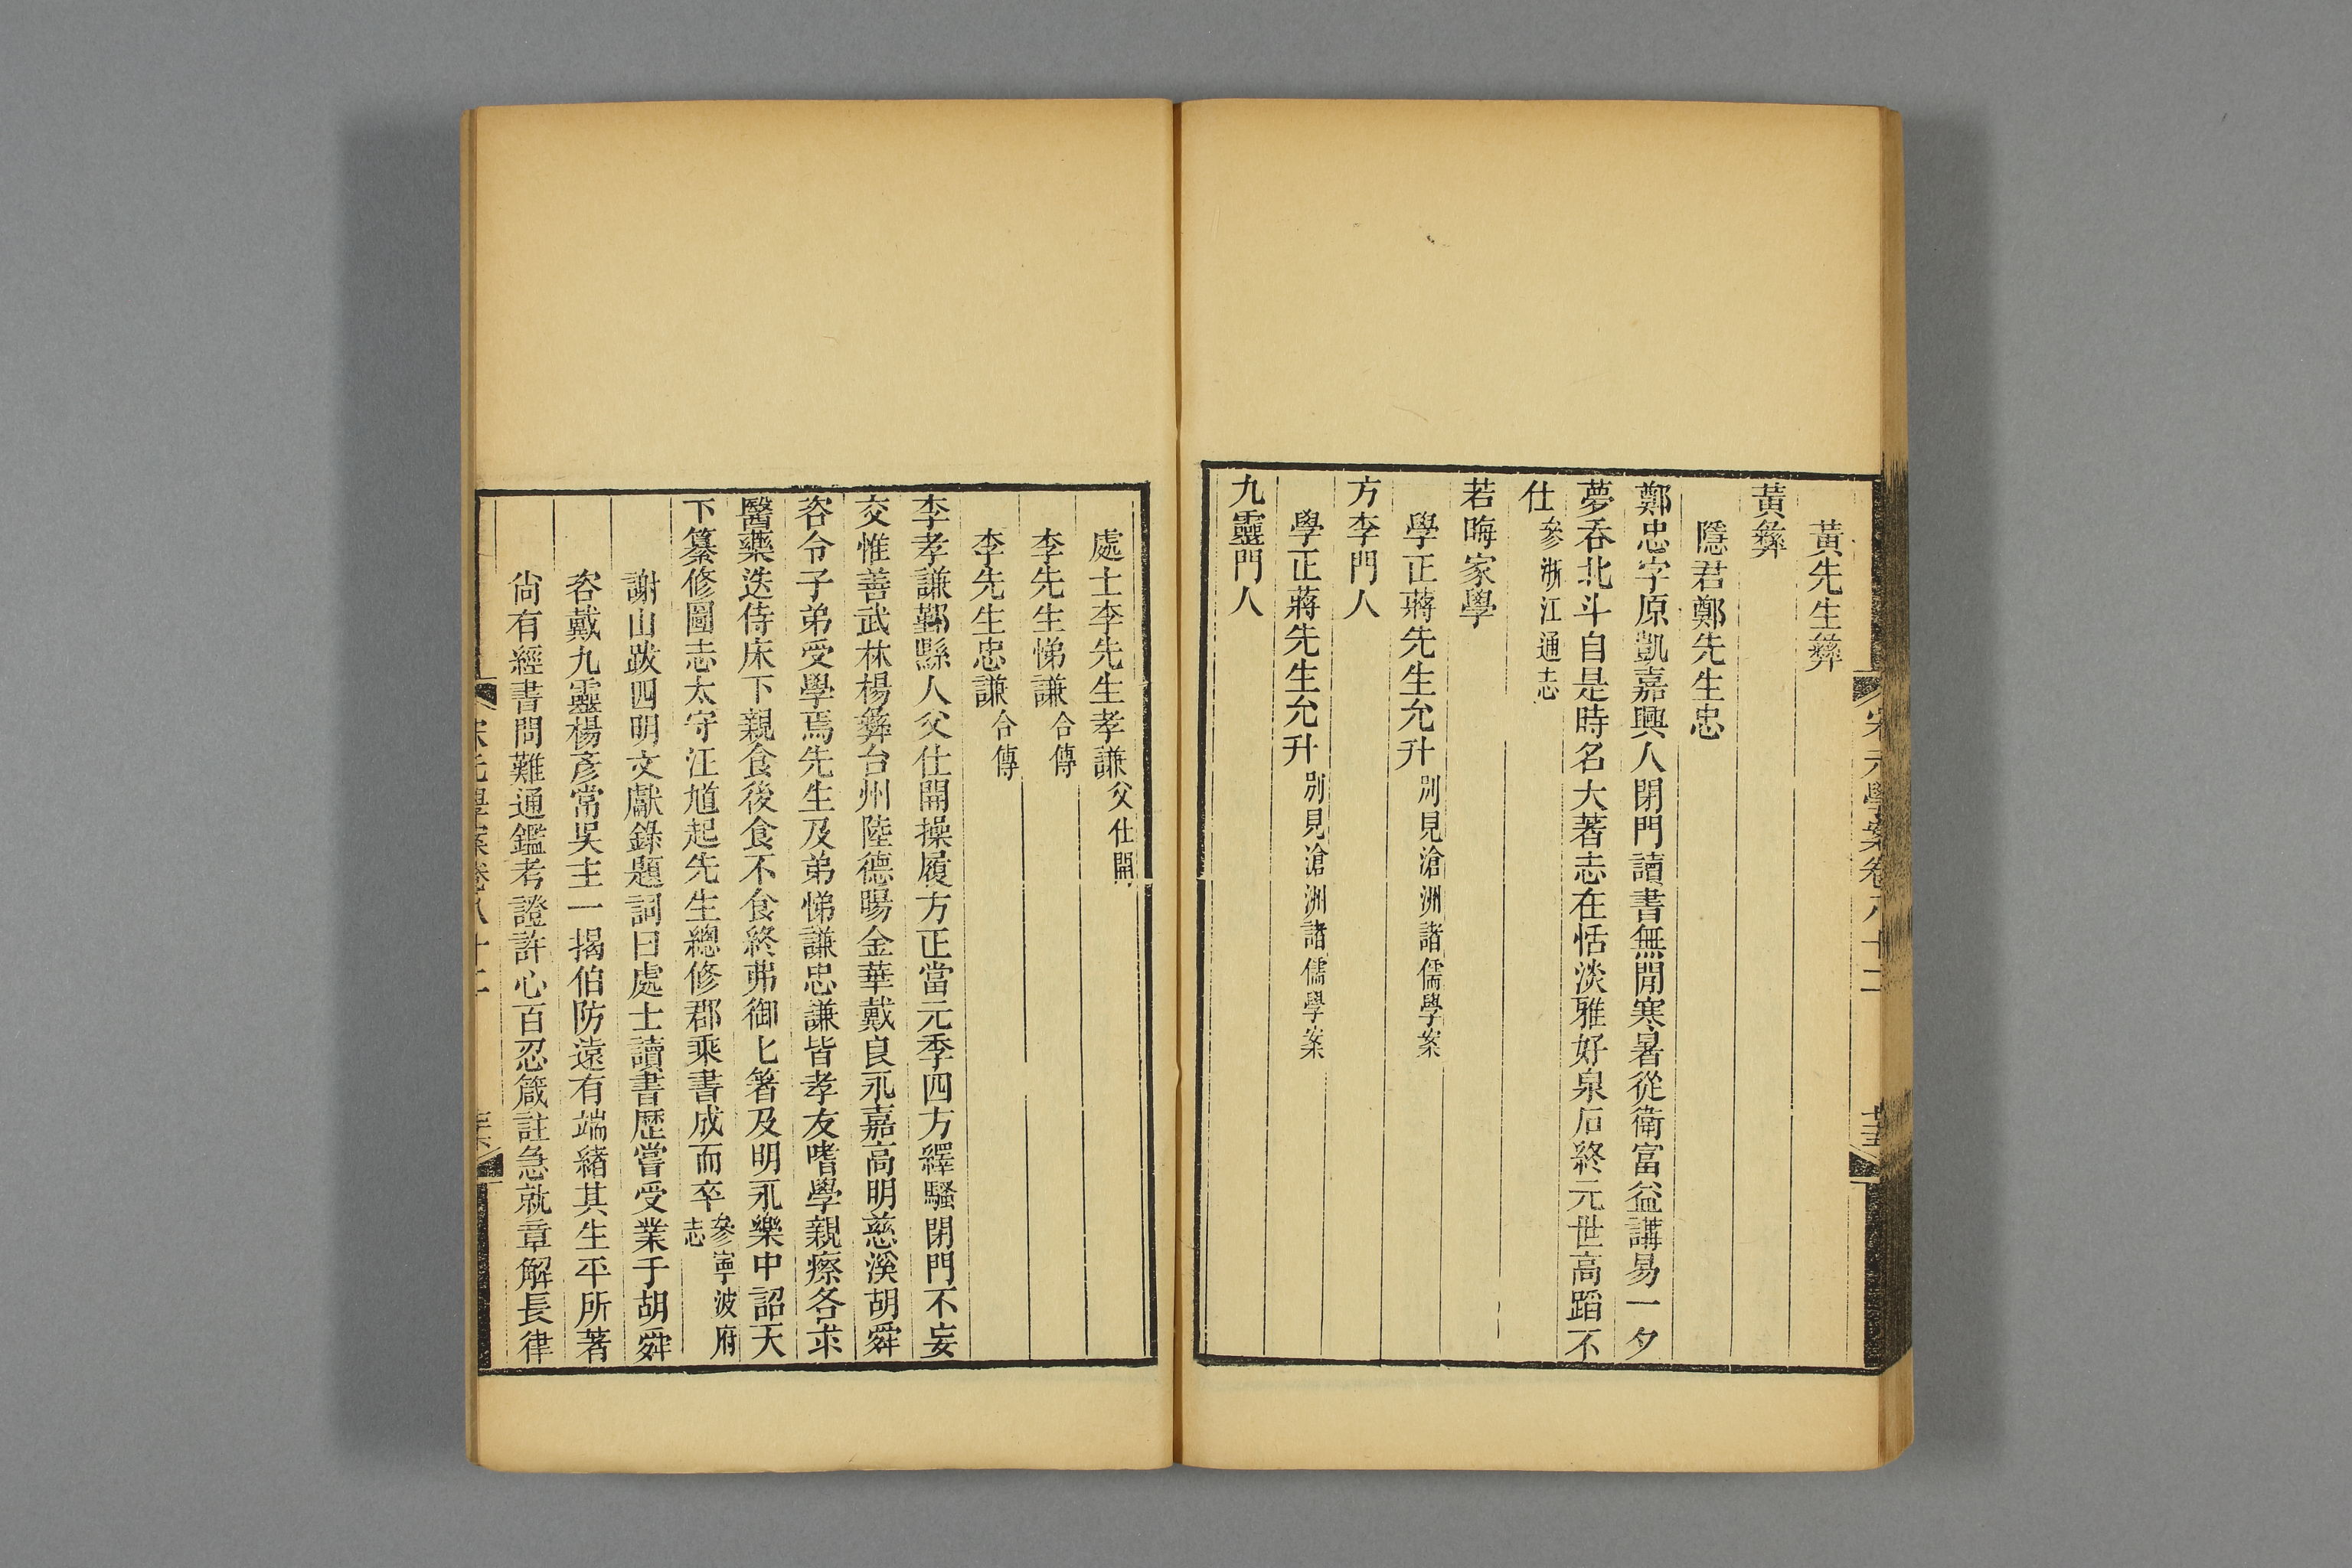 黃先生彝
黃彝
隱君鄭先生忠
鄭忠字原凱嘉興人閉門讀書無閒寒暑從衛富益講易一夕
夢吞北斗自是時名大著志在恬淡雅好泉石終元世高蹈不
仕參浙江通志
若晦家學
學正蔣先生允升別見滄洲諸儒學案
方李門人
學正蔣先生允升別見滄洲諸儒學案
九靈門人
處士李先生孝謙父仕開
李先生悌謙合傳
李先生忠謙合傳
李孝謙鄞縣人父仕開操履方正當元季四方繹騷閉門不妄
交惟善武林楊彝台州陸德暘金華戴良永嘉高明慈溪胡舜
咨令子弟受學焉先生及弟悌謙忠謙皆孝友嗜學親瘵各求
醫藥迭侍床下親食後食不食終弗御匕箸及明永樂中詔天
下纂修圖志太守汪馗起先生總修郡乘書成而卒參寧波府志
謝山跋四明文獻錄題詞曰處士讀書歷嘗受業于胡舜
咨戴九靈楊彥常吳主一揭伯防遠有端緒其生平所著
尙有經書問難通鑑考證許心百忍箴註急就章解長律
宋元學案卷八十二